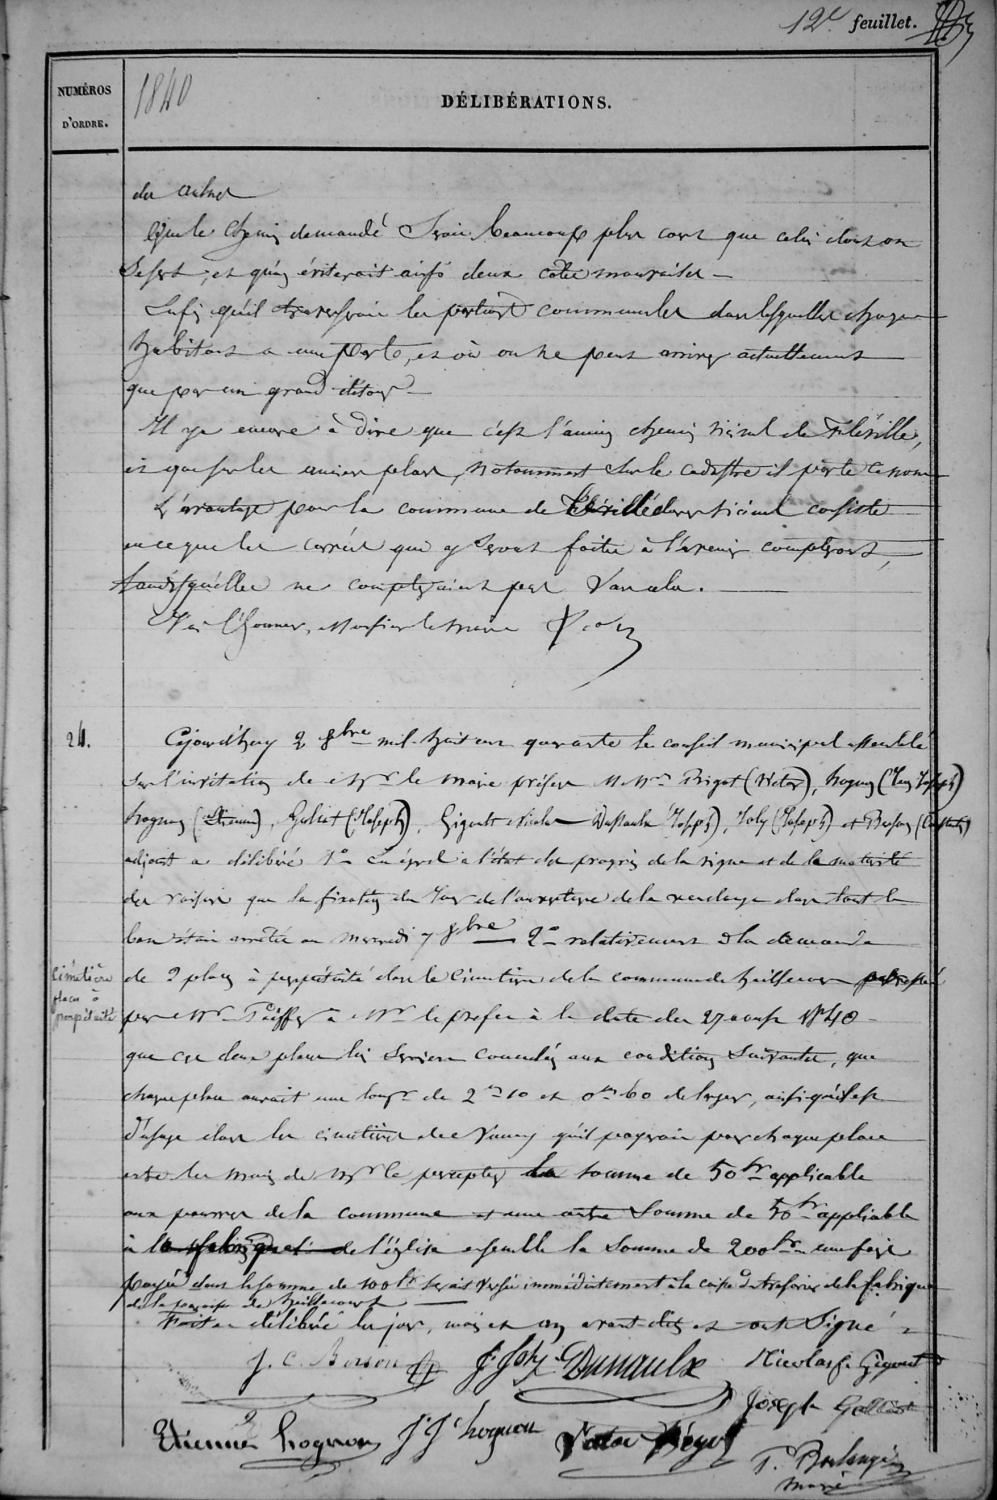 12e feuillet.
NUMÉROS
D'ORDRE.
1840
DÉLIBÉRATIONS.
des autres
Que le chemin demandé serait beaucoup plus court que celui dont on
se sert, et qu'on éviterait ainsi deux côtes mauvaises —
Enfin qu'il traverserait les portions communales dans lesquelles chaque
habitant a une part, et où on ne peut arriver actuellement
que par un grand détour —
Il y a encore à dire que c'est l'ancien chemin vicinal de Fléville,
et que sur les anciens plans, notamment sur le cadastre il porte ce nom
L'avantage pour la commune de vicinal consiste
en ce que les corvées qui y seront faites à l'avenir compteront,
tandis qu'elles ne compteraient pas sans cela. —
J'ai l'honneur, Monsieur le maire
24.
Cejourd'huy 2 8bre mil huit cent quarante le conseil municipal assemblé
sur l'invitation de Mr le maire présens MMrs Bigot (Victor), hognon (Jean Joseph)
hognon (Etienne), Goliot (Joseph), Gigout Nicolas Dussaulx (Joseph), Joly (Joseph) et
adjoint a délibéré 1o en égard à l'état du progrès de la vigne et de la maturité
des raisins que la fixation du jour de l'ouverture de la vendange dans tout le
ban était arrêtée au mercredi 7 8bre 2o relativement à la demande
cimetière
places à
perpétuité
de 2 places à perpétuité dans le cimetière de la commune de heillecourt
par Mr à Mr le prefet à la date du 27 août 1840 —
que ces deux places lui seraient concédées aux conditions suivantes, que
chaque place aurait une longr de 2m 10 et 0m 60 de larger, ainsi qu'il est
d'usage dans les cimetières de Nancy qu'il payerait pour chaque place
entre les mains de Mr le percepteur la somme de 50fr applicable
aux pauvres de la commune et une autre somme de 50fr applicable
à la fabrique de l'église ensemble la somme de 200fr une fois
payée dont la somme de 100fr serait versée immédiatement à la caisse du trésorier de la fabrique
de la paroisse de heillecourt —
Fait et délibéré les jour, mois et an avant dits et ont signé
J. C. J Joly Dussaulx Nicolas Gigout
Joseph
Etienne hognon J J hognon Victor Bigot
maire